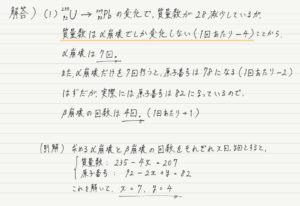 解答) (1) ²³⁵₉₂U → ²⁰⁷₈₂Pb の変化で、質量数が 28 減少しているが、
質量数は α崩壊でしか変化しない (1回あたり-4) ことから、
α崩壊は 7回。
また、α崩壊だけを7回行うと、原子番号は 78 になる (1回あたり-2)
はずだが、実際には原子番号は 82 になっているので、
β崩壊の回数は 4回。(1回あたり+1)
(別解) 求める α崩壊とβ崩壊の回数をそれぞれ x回, y回とすると、
質量数: 235-4x=207
原子番号: 92-2x+y=82
これを解いて、x=7, y=4